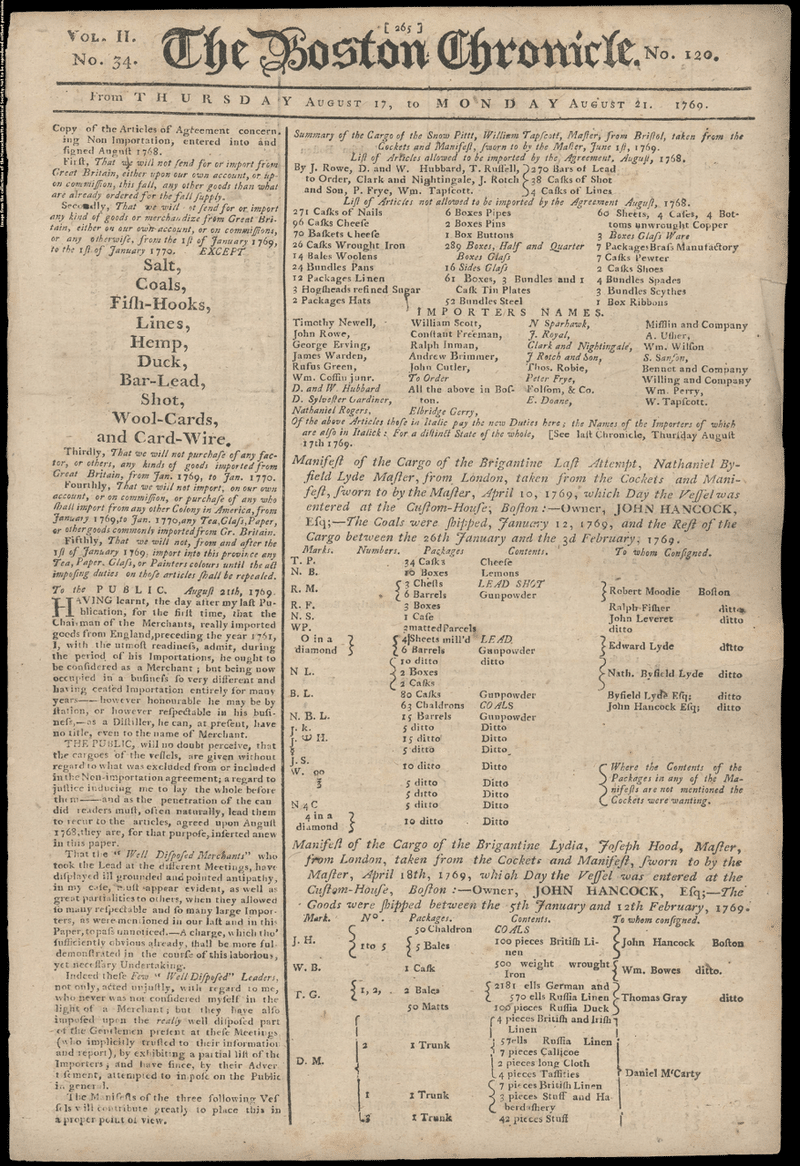 [ 265 ]
VOL. II.
No. 34.
The Boston Chronicle.
No. 120.
From THURSDAY AUGUST 17, to MONDAY AUGUST 21. 1769.
Copy of the Articles of Agreement concern-
ing Non Importation, entered into and
signed August 1768.
First, That we will not send for or import from
Great Britain, either upon our own account, or up-
on commission, this fall, any other goods than what
are already ordered for the fall supply.
Secondly, That we will not send for or import
any kind of goods or merchandize from Great Bri-
tain, either on our own account, or on commissions,
or any otherwise, from the 1st of January 1769,
to the 1st of January 1770. EXCEPT
Salt,
Coals,
Fish-Hooks,
Lines,
Hemp,
Duck,
Bar-Lead,
Shot,
Wool-Cards,
and Card-Wire.
Thirdly, That we will not purchase of any fac-
tor, or others, any kinds of goods imported from
Great Britain, from Jan. 1769, to Jan. 1770.
Fourthly, That we will not import, on our own
account, or on commission, or purchase of any who
shall import from any other Colony in America, from
January 1769, to Jan. 1770, any Tea, Glass, Paper,
or other goods commonly imported from Gr. Britain.
Fifthly, That we will not, from and after the
1st of January 1769, import into this province any
Tea, Paper, Glass, or Painters colours until the act
imposing duties on those articles shall be repealed.
To the PUBLIC. August 21th, 1769.
HAVING learnt, the day after my last Pu-
blication, for the first time, that the
Chairman of the Merchants, really imported
goods from England, preceding the year 1761,
I, with the utmost readiness, admit, during
the period of his Importations, he ought to
be considered as a Merchant; but being now
occupied in a business so very different and
having ceased Importation entirely for many
years——however honourable he may be by
station, or however respectable in his busi-
ness,—as a Distiller, he can, at present, have
no title, even to the name of Merchant.
THE PUBLIC, will no doubt perceive, that
the cargoes of the vessels, are given without
regard to what was excluded from or included
in the Non-importation agreement; a regard to
justice inducing me to lay the whole before
them——and as the penetration of the can
did readers must, often naturally, lead them
to recur to the articles, agreed upon August
1768, they are, for that purpose, inserted anew
in this paper.
That the "Well Disposed Merchants" who
took the Lead at the different Meetings, have
displayed ill grounded and pointed antipathy,
in my case, must appear evident, as well as
great partialities to others, when they allowed
so many respectable and so many large Impor-
ters, as were mentioned in our last and in this
Paper, to pass unnoticed.—A charge, which tho'
sufficiently obvious already, shall be more ful-
demonstrated in the course of this laborious,
yet necessary Undertaking.
Indeed these Few "Well Disposed" Leaders,
not only, acted unjustly, with regard to me,
who never was nor considered myself in the
light of a Merchant; but they have also
imposed upon the really well disposed part
of the Gentlemen present at these Meetings
(who implicitly trusted to their information
and report), by exhibiting a partial list of the
Importers, and have since, by their Adver
tisement, attempted to impose on the Public
in general.
The Manifests of the three following Ves
sels will contribute greatly to place this in
a proper point of view.
Summary of the Cargo of the Snow Pittt, William Tapscott, Master, from Bristol, taken from the
Cockets and Manifest, sworn to by the Master, June 1st, 1769.
List of Articles allowed to be imported by the Agreement, August, 1768.
By J. Rowe, D. and W. Hubbard, T. Russell, 270 Bars of Lead
to Order, Clark and Nightingale, J. Rotch 38 Casks of Shot
and Son, P. Frye, Wm. Tapscott. 4 Casks of Lines
List of Articles not allowed to be imported by the Agreement August, 1768.
271 Casks of Nails 6 Boxes Pipes 60 Sheets, 4 Cases, 4 Bot-
96 Casks Cheese 2 Boxes Pins toms unwrought Copper
70 Baskets Cheese 1 Box Buttons 3 Boxes Glass Ware
26 Casks Wrought Iron 289 Boxes, Half and Quarter 7 Packages Brass Manufactory
14 Bales Woolens Boxes Glass 7 Casks Pewter
24 Bundles Pans 16 Sides Glass 2 Casks Shoes
12 Packages Linen 61 Boxes, 3 Bundles and 1 4 Bundles Spades
3 Hogsheads refined Sugar Cask Tin Plates 3 Bundles Scythes
2 Packages Hats 52 Bundles Steel 1 Box Ribbons
IMPORTERS NAMES.
Timothy Newell, William Scott, N Sparhawk, Mifflin and Company
John Rowe, Constant Freeman, J. Royal, A. Usher,
George Erving, Ralph Inman, Clark and Nightingale, Wm. Wilson
James Warden, Andrew Brimmer, J Rotch and Son, S. Sanson,
Rufus Green, John Cutler, Thos. Robie, Bennet and Company
Wm. Coffin junr. To Order Peter Frye, Willing and Company
D. and W. Hubbard All the above in Bos- Folsom, & Co. Wm. Perry,
D. Sylvester Gardiner, ton. E. Doane, W. Tapscott.
Nathaniel Rogers, Elbridge Gerry,
Of the above Articles those in Italic pay the new Duties here; the Names of the Importers of which
are also in Italick: For a distinct State of the whole, [See last Chronicle, Thursday August
17th 1769.
Manifest of the Cargo of the Brigantine Last Attempt, Nathaniel By-
field Lyde Master, from London, taken from the Cockets and Mani-
fest, sworn to by the Master, April 10, 1769, which Day the Vessel was
entered at the Custom-House, Boston:—Owner, JOHN HANCOCK,
Esq;—The Coals were shipped, January 12, 1769, and the Rest of the
Cargo between the 26th January and the 3d February, 1769.
Marks. Numbers. Packages Contents. To whom Consigned.
T. P. 34 Casks Cheese
N. B. 10 Boxes Lemons
R. M. 3 Chests LEAD SHOT
6 Barrels Gunpowder Robert Moodie Boston
R. F. 3 Boxes Ralph Fisher ditto
N. S. 1 Case John Leveret ditto
WP. 2 matted Parcels ditto
O in a 4 Sheets mill'd LEAD
diamond 6 Barrels Gunpowder Edward Lyde ditto
10 ditto ditto
N L. 2 Boxes Nath. Byfield Lyde ditto
2 Casks
B. L. 80 Casks Gunpowder Byfield Lyde Esq; ditto
63 Chaldrons COALS John Hancock Esq; ditto
N. B. L. 15 Barrels Gunpowder
J. k. 5 ditto Ditto
J. W H. 15 ditto Ditto
5 ditto Ditto
J. S.
W. 10 ditto Ditto Where the Contents of the
5 ditto Ditto Packages in any of the Ma-
5 ditto Ditto nifests are not mentioned the
N 4 C 5 ditto Ditto Cockets were wanting.
4 in a
diamond 10 ditto Ditto
Manifest of the Cargo of the Brigantine Lydia, Joseph Hood, Master,
from London, taken from the Cockets and Manifest, sworn to by the
Master, April 18th, 1769, which Day the Vessel was entered at the
Custom-House, Boston:—Owner, JOHN HANCOCK, Esq;—The
Goods were shipped between the 5th January and 12th February, 1769.
Mark. No. Packages. Contents. To whom consigned.
50 Chaldron COALS
J. H. 1 to 5 5 Bales 100 pieces British Li-
nen John Hancock Boston
W. B. 1 Cask 500 weight wrought
Iron Wm. Bowes ditto.
T. G. 1, 2, 2 Bales 2181 ells German and
570 ells Russia Linen Thomas Gray ditto
50 Matts 100 pieces Russia Duck
4 pieces British and Irish
Linen
2 1 Trunk 57 ells Russia Linen
7 pieces Callicoe
D. M. 2 pieces long Cloth
4 pieces Taffities Daniel McCarty
7 pieces British Linen
1 1 Trunk 3 pieces Stuff and Ha-
berdashery
3 1 Trunk 42 pieces Stuff